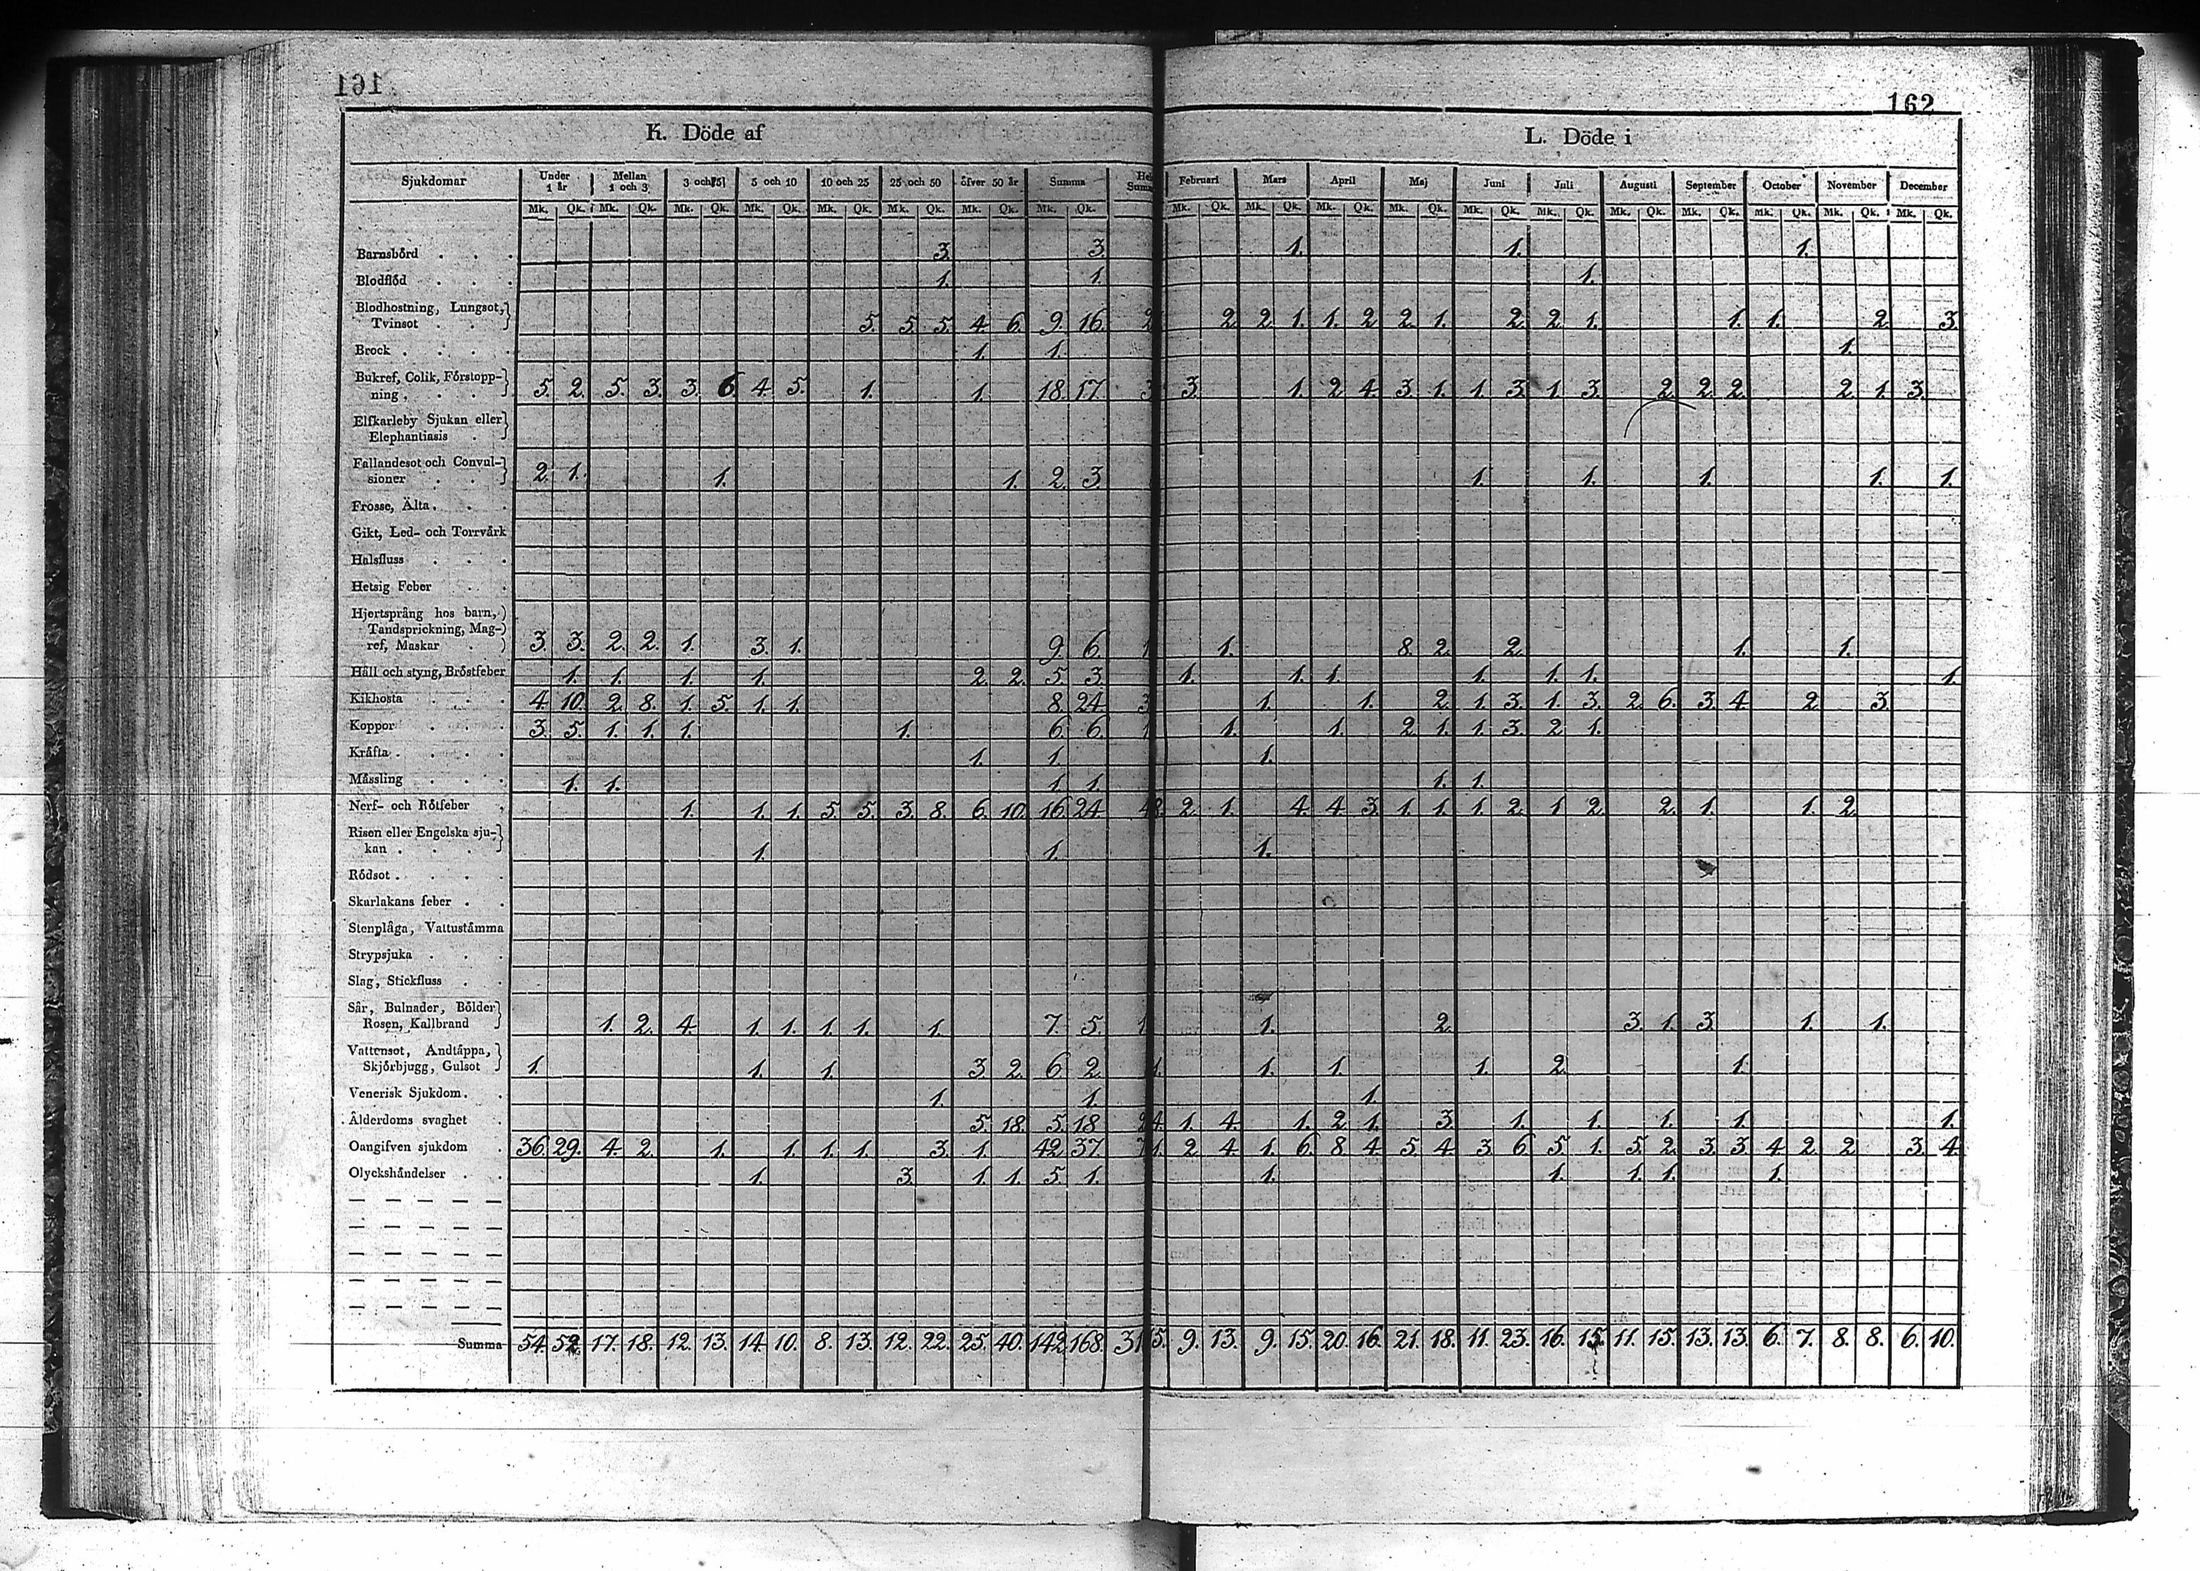 161
162
K. Döde af
L. Döde i
Sjukdomar Under 1 år Mellan 1 och 3 3 och 5 5 och 10 10 och 25 25 och 50 öfver 50 år Summa Februari Mars April Maj Juni Juli Augusti September October November December
Mk. Qk. Mk. Qk. Mk. Qk. Mk. Qk. Mk. Qk. Mk. Qk. Mk. Qk. Mk. Qk. Mk. Qk. Mk. Qk. Mk. Qk. Mk. Qk. Mk. Qk. Mk. Qk. Mk. Qk. Mk. Qk. Mk. Qk. Mk. Qk. Mk. Qk.
Barnsbörd . . . 3. 3. 1. 1. 1.
Blodflöd . . . 1. 1. 1.
Blodhostning, Lungsot,
Tvinsot . . 5. 5. 5. 4. 6. 9. 16. 2. 2. 1. 1. 2. 2. 1. 2. 2. 1. 1. 1. 2. 3.
Brock . . . . 1. 1. 1.
Bukref, Colik, Förstopp-
ning . . . 5. 2. 5. 3. 3. 6 4. 5. 1. 1. 18. 17. 3. 1. 2. 4. 3. 1. 1. 3. 1. 3. 2. 2. 2. 2. 1. 3.
Elfkarleby Sjukan eller
Elephantiasis .
Fallandesot och Convul-
sioner . . 2. 1. 1. 1. 2. 3. 1. 1. 1. 1. 1.
Frosse, Älta . . .
Gikt, Led- och Torrvärk
Halsfluss . . .
Hetsig Feber . .
Hjertsprång hos barn,
Tandsprickning, Mag-
ref, Maskar . 3. 3. 2. 2. 1. 3. 1. 9. 6. 1. 8. 2. 2. 1. 1.
Håll och styng, Bröstfeber 1. 1. 1. 1. 2. 2. 5. 3. 1. 1. 1. 1. 1. 1. 1.
Kikhosta . . . 4. 10. 2. 8. 1. 5. 1. 1. 8. 24. 1. 1. 2. 1. 3. 1. 3. 2. 6. 3. 4. 2. 3.
Koppor . . . 3. 5. 1. 1. 1. 1. 6. 6. 1. 1. 2. 1. 1. 3. 2. 1.
Kräfta . . . . 1. 1. 1.
Mässling . . . 1. 1. 1. 1. 1. 1.
Nerf- och Rötfeber . 1. 1. 1. 5. 5. 3. 8. 6. 10. 16. 24. 2. 1. 4. 4. 3. 1. 1. 1. 2. 1. 2. 2. 1. 1. 2.
Risen eller Engelska sju-
kan . . . 1. 1. 1.
Rödsot . . . .
Skarlakans feber . .
Stenplåga, Vattustämma
Strypsjuka . . .
Slag, Stickfluss . .
Sår, Bulnader, Bölder
Rosen, Kallbrand 1. 2. 4. 1. 1. 1. 1. 1. 7. 5. 1. 2. 3. 1. 3. 1. 1.
Vattensot, Andtäppa,
Skjörbjugg, Gulsot 1. 1. 1. 3. 2. 6. 2. 1. 1. 1. 2. 1.
Venerisk Sjukdom . . 1. 1. 1.
Ålderdoms svaghet . 5. 18. 5. 18. 1. 4. 1. 2. 1. 3. 1. 1. 1. 1. 1.
Oangifven sjukdom . 36. 29. 4. 2. 1. 1. 1. 1. 3. 1. 42. 37. 2. 4. 1. 6. 8. 4. 5. 4. 3. 6. 5. 1. 5. 2. 3. 3. 4. 2. 2. 3. 4.
Olyckshändelser . . 1. 3. 1. 1. 5. 1. 1. 1. 1. 1. 1.
Summa 54. 52. 17. 18. 12. 13. 14. 10. 8. 13. 12. 22. 25. 40. 142. 168. 9. 13. 9. 15. 20. 16. 21. 18. 11. 23. 16. 15. 11. 15. 13. 13. 6. 7. 8. 8. 6. 10.